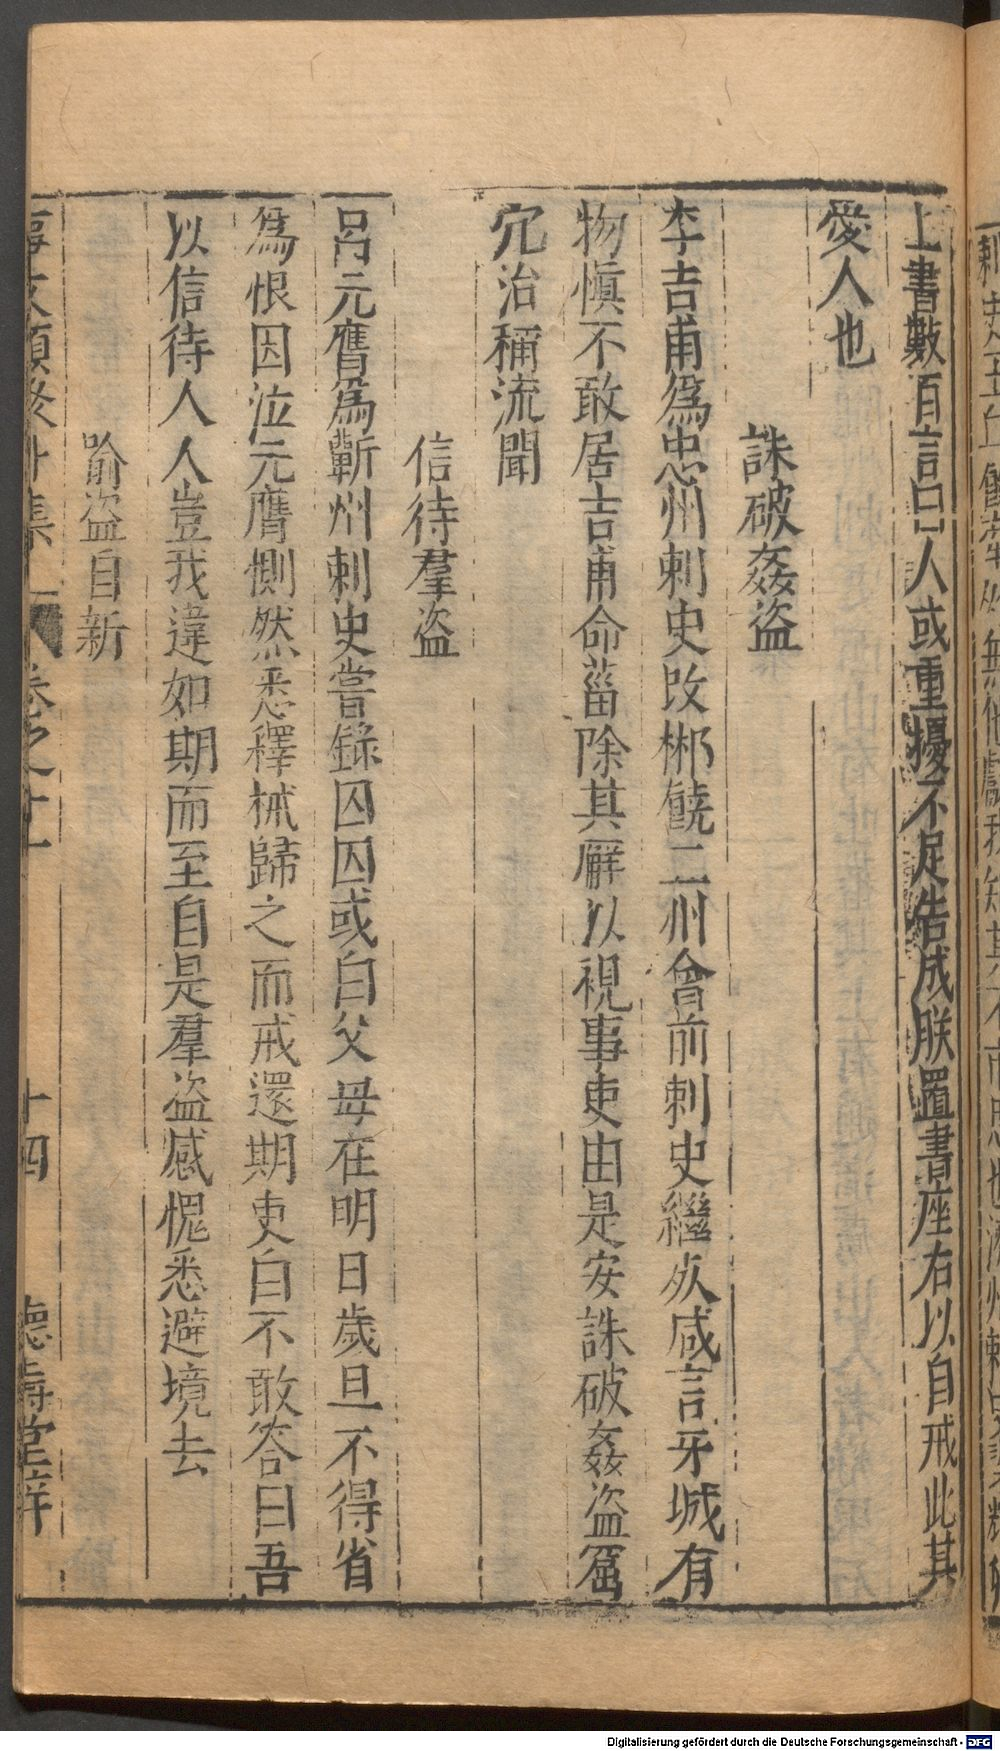 上書數百言曰人或重擾不足浩成朕置書座右以自戒此其
愛人也
誅破姦盜
李吉甫爲忠州刺史改郴饒二州會前刺史繼死咸言牙城有
物愼不敢居吉甫命菑除其廨以視事吏由是安誅破姦盜窟
穴治稱流聞
信待羣盜
呂元膺爲蘄州刺史嘗錄囚囚或白父母在明日歲旦不得省
爲恨因泣元膺惻然悉釋械歸之而戒還期吏白不敢答曰吾
以信待人人豈我違如期而至自是羣盜感愧悉避境去
喻盜自新
事文類聚外集 卷之十一 十四 德壽堂梓
Digitalisierung gefördert durch die Deutsche Forschungsgemeinschaft - DFG